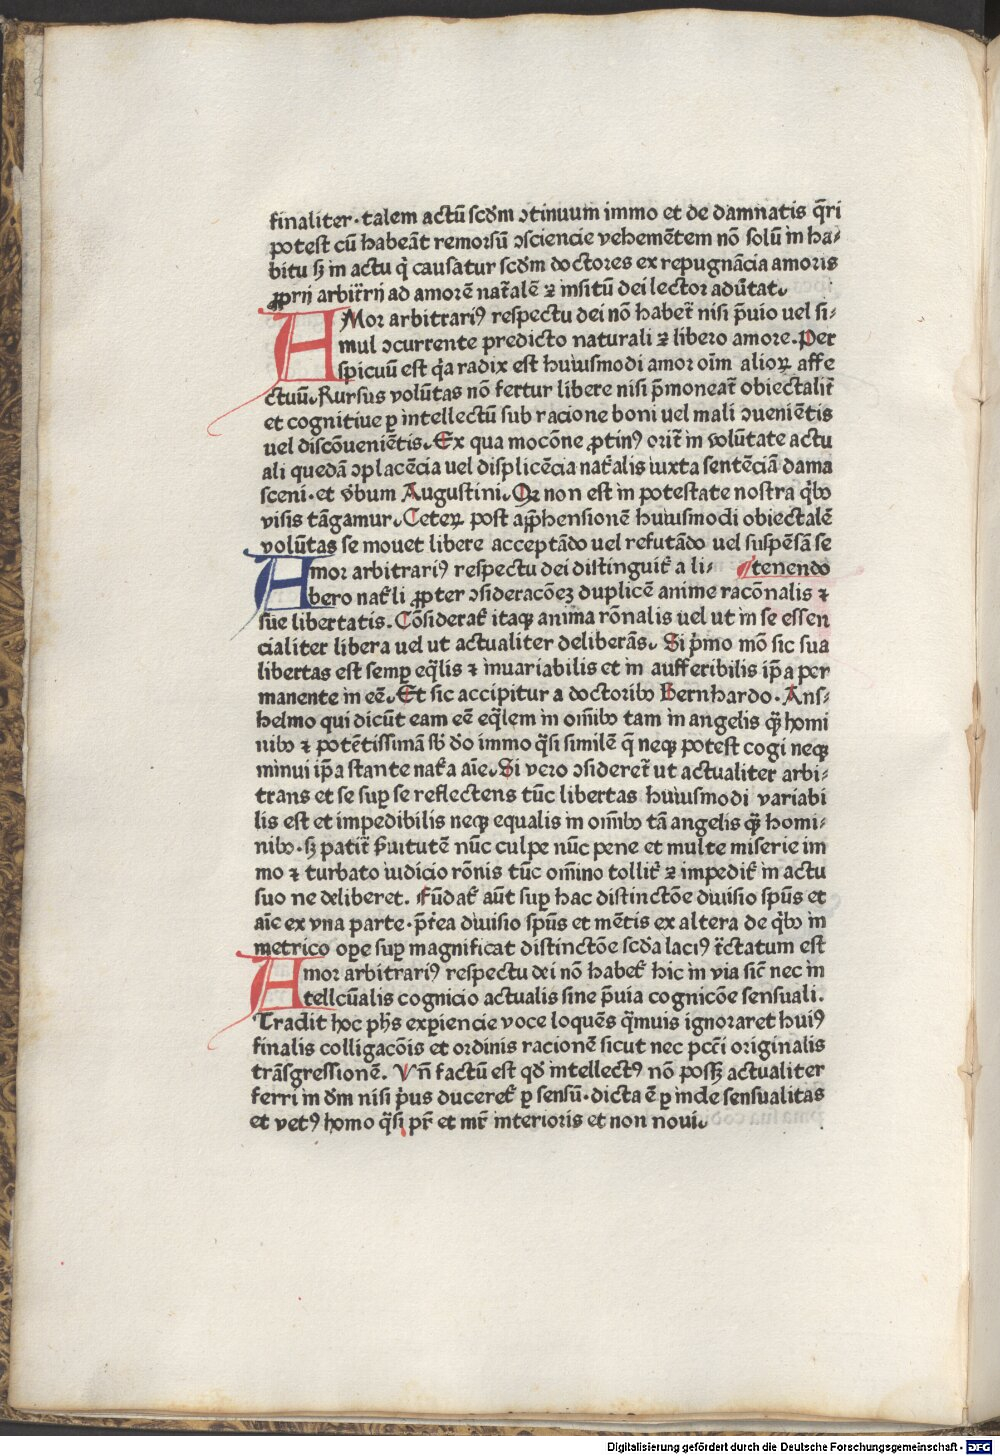 finaliter· talem actū scd̄m ɔtinuum immo et de damnatis q̄ri
potest cū habeāt remorsū ɔsciencie vehemētem nō solū in ha⸗
bitu sꝫ in actu q̇ causatur scd̄m doctores ex repugnācia amoris
ꝓprij arbitr̄rij ad amorē nat̄alē ⁊ insitū dei lector adūtat.
AMor arbitrariꝰ respectu dei nō habet̄ nisi p̄uio uel si⸗
mul ɔcurrente predicto naturali ⁊ libero amore. Per
spicuū est q̇a radix est huiusmodi amor oīm alioꝝ affe
ctuū. Rursus volūtas nō fertur libere nisi p̄moneat̄ obiectalit̄
et cognitiue ꝑ intellectū sub racione boni uel mali ɔueniētis
uel discōueniētis. Ex qua mocōne ꝓtinꝰ orit̄ in volūtate actu
ali quedā ɔplacēcia uel displicēcia nat̄alis iuxta sentēciā dama
sceni· et v̄bum Augustini. Qꝛ non est in potestate nostra q̇bꝰ
visis tāgamur. Ceteꝝ post app̄hensionē huiusmodi obiectalē
volūtas se mouet libere acceptādo uel refutādo uel suspēsā se
Amor arbitrariꝰ respectu dei distinguit̄ a li⸗ ¶tenendo
bero nat̄li ꝓpter ɔsideracōeꝫ duplicē anime racōnalis ⁊
sue libertatis. Cōsiderat̄ itaqꝫ anima rōnalis uel ut in se essen
cialiter libera uel ut actualiter deliberās. Si p̄mo mō sic sua
libertas est semꝑ eq̄lis ⁊ inuariabilis et in aufferibilis ip̄a per
manente in eē. Et sic accipitur a doctoribꝰ Bernhardo· Ans⸗
helmo qui dicūt eam eē eq̄lem in om̄ibꝰ tam in angelis qꝫ̄ homi
nibꝰ ⁊ potētissimā sb̄ do immo q̄si similē q̄ neqꝫ potest cogi neqꝫ
minui ip̄a stante nat̄a aīe. Si vero ɔsideret̄ ut actualiter arbi⸗
trans et se suꝑ se reflectens tūc libertas huiusmodi variabi
lis est et impedibilis neqꝫ equalis in om̄ibꝰ tā angelis qꝫ̄ homi⸗
nibꝰ· sꝫ patit̄ s̄uitutē nūc culpe nūc pene et multe miserie im
mo ⁊ turbato iudicio rōnis tūc om̄ino tollit̄ ⁊ impedit̄ in actu
suo ne deliberet. Fūdat̄ aūt suꝑ hac distinctōe diuisio spūs et
aīe ex vna parte· p̄t̄ea diuisio spūs et mētis ex altera de q̇bꝰ in
metrico oꝑe suꝑ magnificat distinctōe scd̄a laciꝰ tr̄ctatum est
Amor arbitrariꝰ respectu dei nō habet̄ hic in via sic̄ nec in
tellcūalis cognicio actualis sine p̄uia cognicōe sensuali.
Tradit hoc phs̄ exꝑiencie voce loquēs q̄muis ignoraret huiꝰ
finalis colligacōis et ordinis racionē sicut nec pcc̄i originalis
trāsgressionē. Vn̄ factū est qd̄ intellectꝰ nō possꝫ actualiter
ferri in dm̄ nisi p̄us duceret̄ ꝑ sensū· dicta ē ꝑinde sensualitas
et vetꝰ homo q̄si pr̄ et mr̄ interioris et non noui.
Digitalisierung gefördert durch die Deutsche Forschungsgemeinschaft - DFG